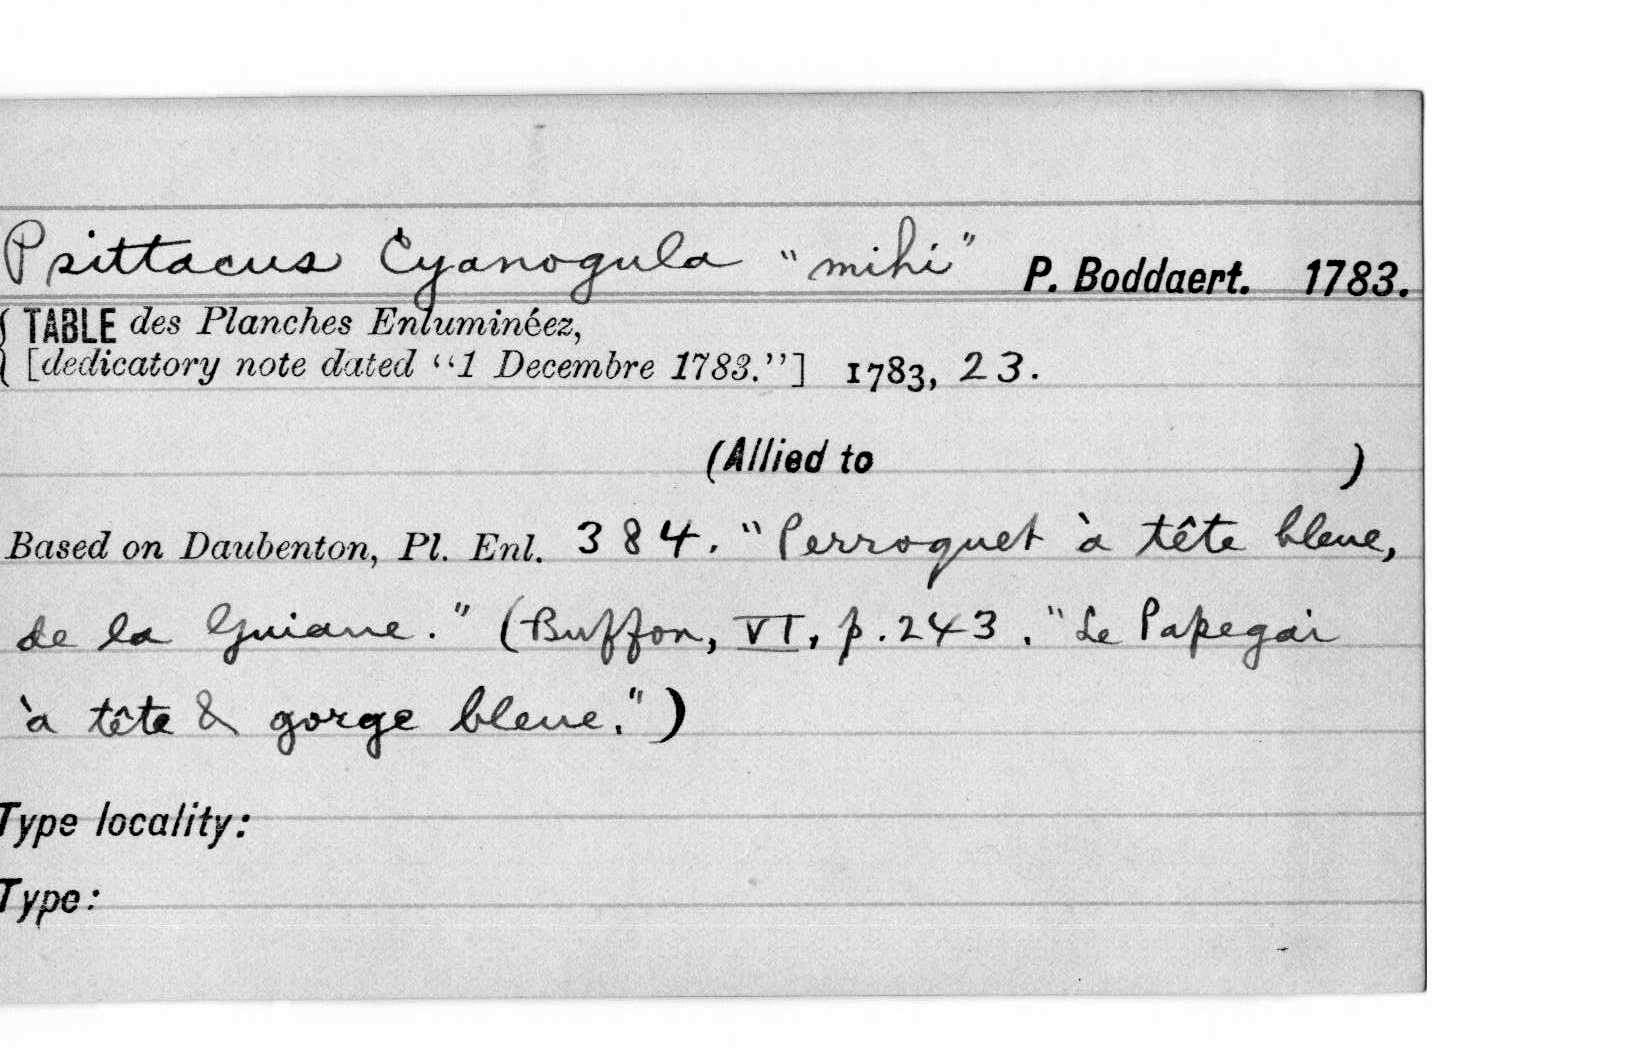 Psittacus Cyanogula "mihi" P. Boddaert. 1783.
TABLE des Planches Enluminéez,
[dedicatory note dated "1 Decembre 1783."] 1783, 23.
(Allied to )
Based on Daubenton, Pl. Enl. 384. "Perroquet à tête bleue,
de la Guiane." (Buffon, VI, p. 243. "Le Papegai
à tête & gorge bleue.")
Type locality:
Type: